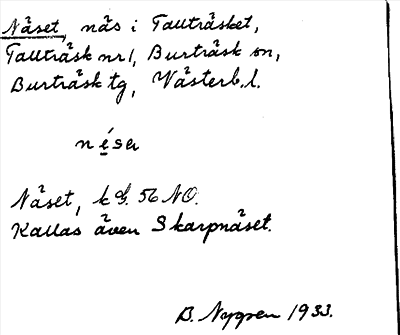 Näset, näs i Tallträsket,
Tallträsk nr 1, Burträsk sn,
Burträsk tg, Västerb. l.
nésa
Näset, k G. 56 NO.
Kallas även Skarpnäset.
B. Nygren 1933.